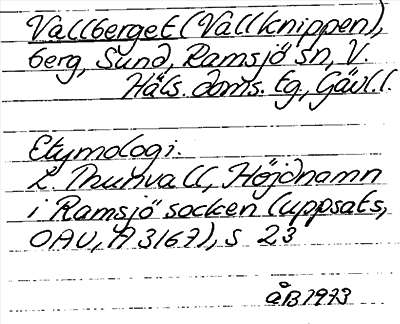 Vallberget (Vallknippen),
berg, Sund, Ramsjö sn, V.
Häls. doms. tg, Gävl.l.
Etymologi:
L. Thunvall, Höjdnamn
i Ramsjö socken (uppsats,
OAU, A 3167), s 23
ÅB 1973